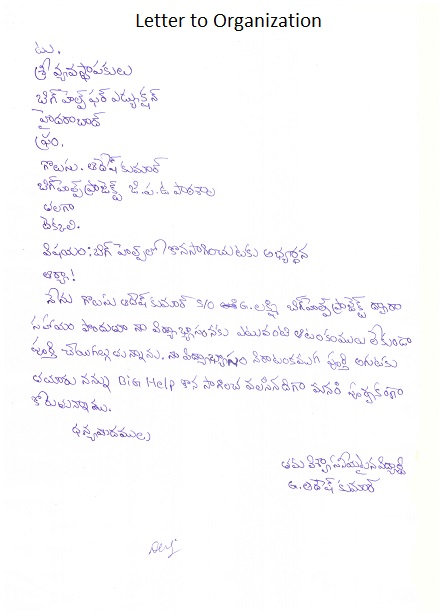 Letter to Organization
టు.
శ్రీ వ్యవస్థాపకులు
బిగ్ హెల్ప్ ఫర్ ఎడ్యుకేషన్
హైదరాబాద్
ఫ్రం.
గాలుసు. ఆదేష్ కుమార్
బిగ్ హెల్ప్ ప్రాజెక్ట్ జి.ప.ఉ పాఠశాల
తలగాం
టెక్కలి.
విషయం: బిగ్ హెల్ప్ లో కొనసాగించుటకు అభ్యర్థన
ఆర్యా!
నేను గాలుసు ఆదేష్ కుమార్ S/O G. లక్ష్మి బిగ్ హెల్ప్ ప్రాజెక్ట్ ద్వారా
సహాయం పొందుతూ నా విద్యాభ్యాసంనకు ఎటువంటి ఆటంకములు లేకుండా
పూర్తి చేయగల్గుతున్నాను. నా విద్యాభ్యాసం నిరాటంకముగ పూర్తి అగుటకు
తమరు నన్ను BIG Help కొన సాగించ వలసినదిగా మనవి పూర్వకంగా
కోరుచున్నాము.
ధన్యవాదములు
తమ విశ్వాసనీయమైన విద్యార్థి
G. ఆదేష్ కుమార్